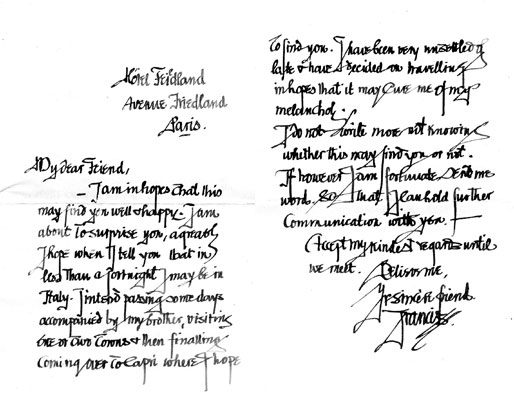 Hôtel Friedland
Avenue Friedland
Paris.
My dear Friend,
– I am in hopes that this
may find you well & happy. I am
about to surprise you, a great,
I hope when I tell you that in
less than a fortnight I may be in
Italy. I intend passing some days
accompanied by my brother, visiting
one or two Towns & then finalling
coming over to Capri where I hope
to find you. I have been very unsettled of
late & have decided on travelling
in hopes that it may cure me of my
melancholy.
I do not write more not knowing
whether this may find you or not.
If however I am fortunate send me
word so that I can hold further
Communication with you.
Accept my kindest regards until
we meet. Believe me,
Yr sincere friend
Francis.